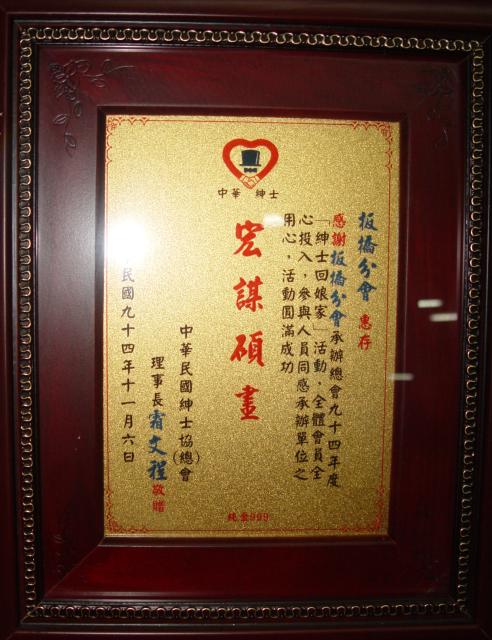 中華 紳士
板橋分會 惠存
感謝板橋分會承辦總會九十四年度
「紳士回娘家」活動，全體會員全
心投入，參與人員同感承辦單位之
用心，活動圓滿成功
宏謀碩畫
中華民國紳士協(總)會
理事長 霜文程 敬贈
民國九十四年十一月六日
純金999